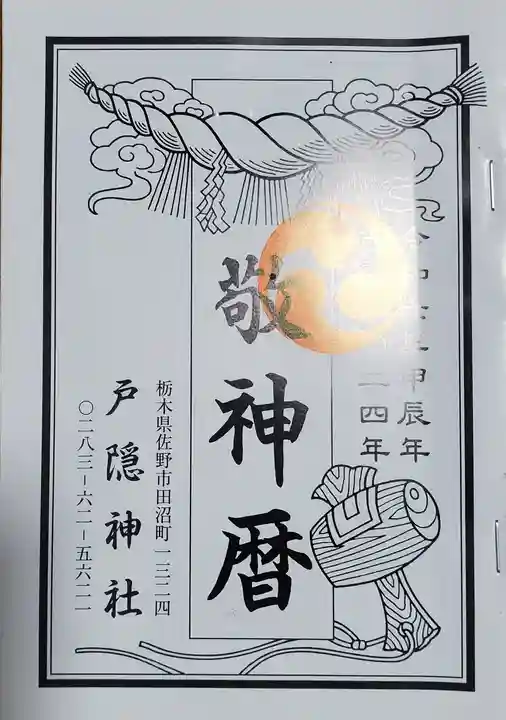 令和六年甲辰年
二四年
敬神暦
栃木県佐野市田沼町一三二四
戸隠神社
〇二八三－六二－五六二一